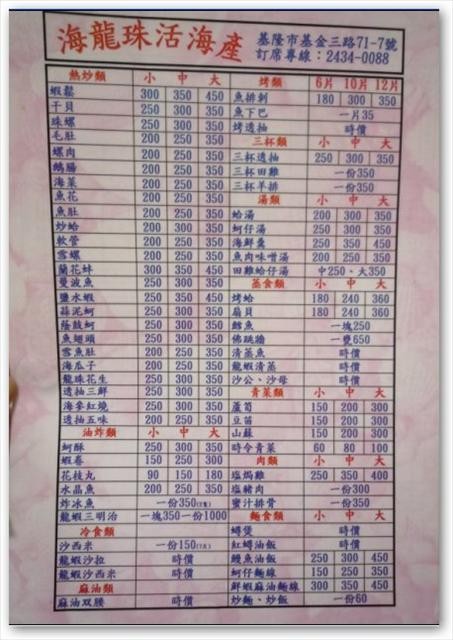 海龍珠活海產
基隆市基金三路71-7號
訂席專線：2434-0088
熱炒類 小 中 大
蝦鬆 300 350 450
干貝 250 300 350
珠螺 250 300 350
毛肚 200 250 350
螺肉 200 250 350
鵝腸 200 250 350
海菜 200 250 350
魚花 200 250 350
魚肚 200 250 350
炒蛤 200 250 350
軟管 200 250 350
雪螺 200 250 350
蘭花蚌 300 350 450
曼波魚 250 300 350
鹽水蝦 250 350 450
蒜泥蚵 250 300 350
蔭鼓蚵 250 300 350
魚翅頭 250 300 350
雪魚肚 250 300 350
海瓜子 200 250 350
龍珠花生 250 300 350
透抽三鮮 250 300 350
海參紅燒 250 300 350
透抽五味 200 250 350
油炸類 小 中 大
蚵酥 250 300 350
蝦卷 150 250 300
花枝丸 90 150 180
水晶魚 200 250 350
炸冰魚 一份350
龍蝦三明治 一塊350一份1000
冷食類
沙西米 一份150
龍蝦沙拉 時價
龍蝦沙西米 時價
麻油類
麻油双腰 時價
烤類 6片 10片 12片
魚排刺 180 300 350
魚下巴 一片35
烤透抽 時價
三杯類 小 中 大
三杯透抽 250 300 350
三杯田雞 一份350
三杯羊排 一份350
湯類 小 中 大
蛤湯 200 300 350
蚵仔湯 250 300 350
海鮮羹 250 350 450
魚肉味噌湯 200 250 350
田雞蛤仔湯 中250、大350
蒸食類 小 中 大
烤蛤 180 240 360
扇貝 180 240 360
鱈魚 一塊250
佛跳牆 一甕650
清蒸魚 時價
龍蝦清蒸 時價
沙公、沙母 時價
青菜類 小 中 大
蘆筍 150 200 300
豆苗 150 200 300
山蘇 150 200 300
時令青菜 60 80 100
肉類 小 中 大
塩焗雞 250 350 400
塩豬肉 一份300
蜜汁排骨 一份350
麵食類 小 中 大
蟳煲 時價
紅蟳油飯 時價
鰻魚油飯 250 300 450
蚵仔麵線 150 250 350
鮮蝦麻油麵線 300 350 450
炒麵、炒飯 一份60